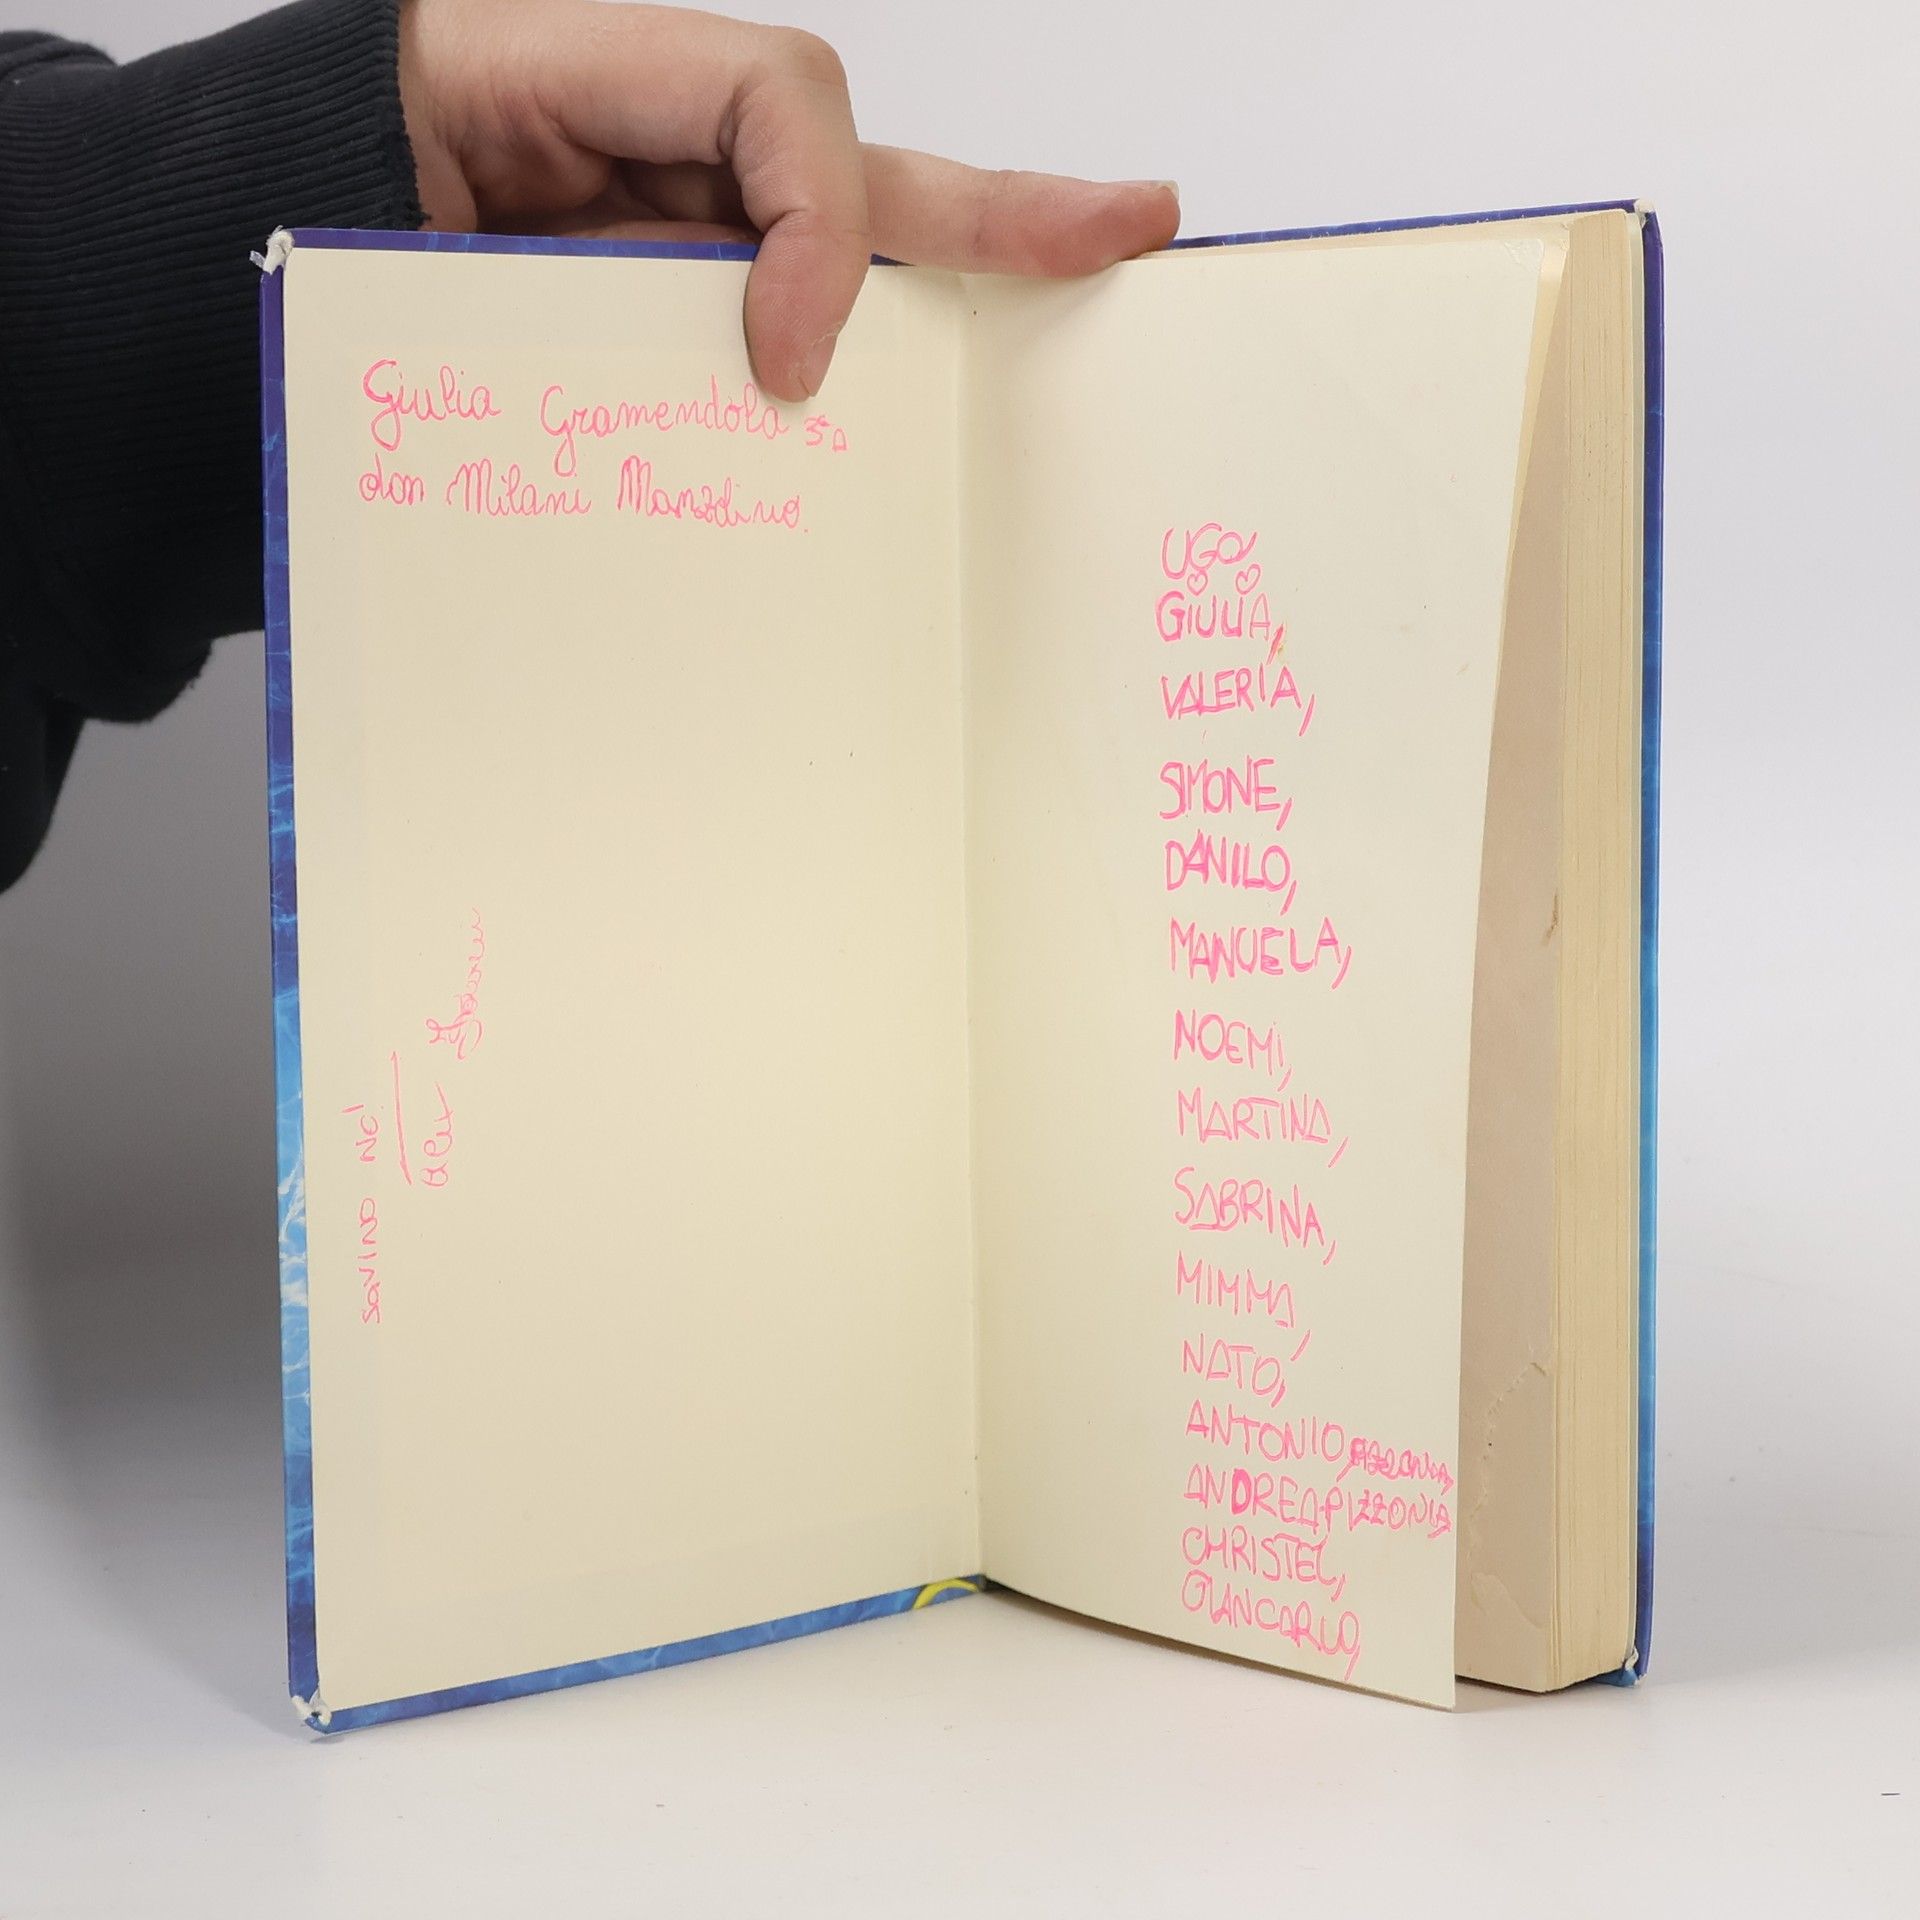 Giulia Gramendola 5ª A
don Milani Manzolino.
SAVINO NO!
UGO
GIULIA,
VALERIA,
SIMONE,
DANILO,
MANUELA,
NOEMI,
MARTINA,
SABRINA,
MIMMA,
NATO,
ANTONIO,
ANDREA PIZZONIA
CHRISTEL,
GIANCARLO,